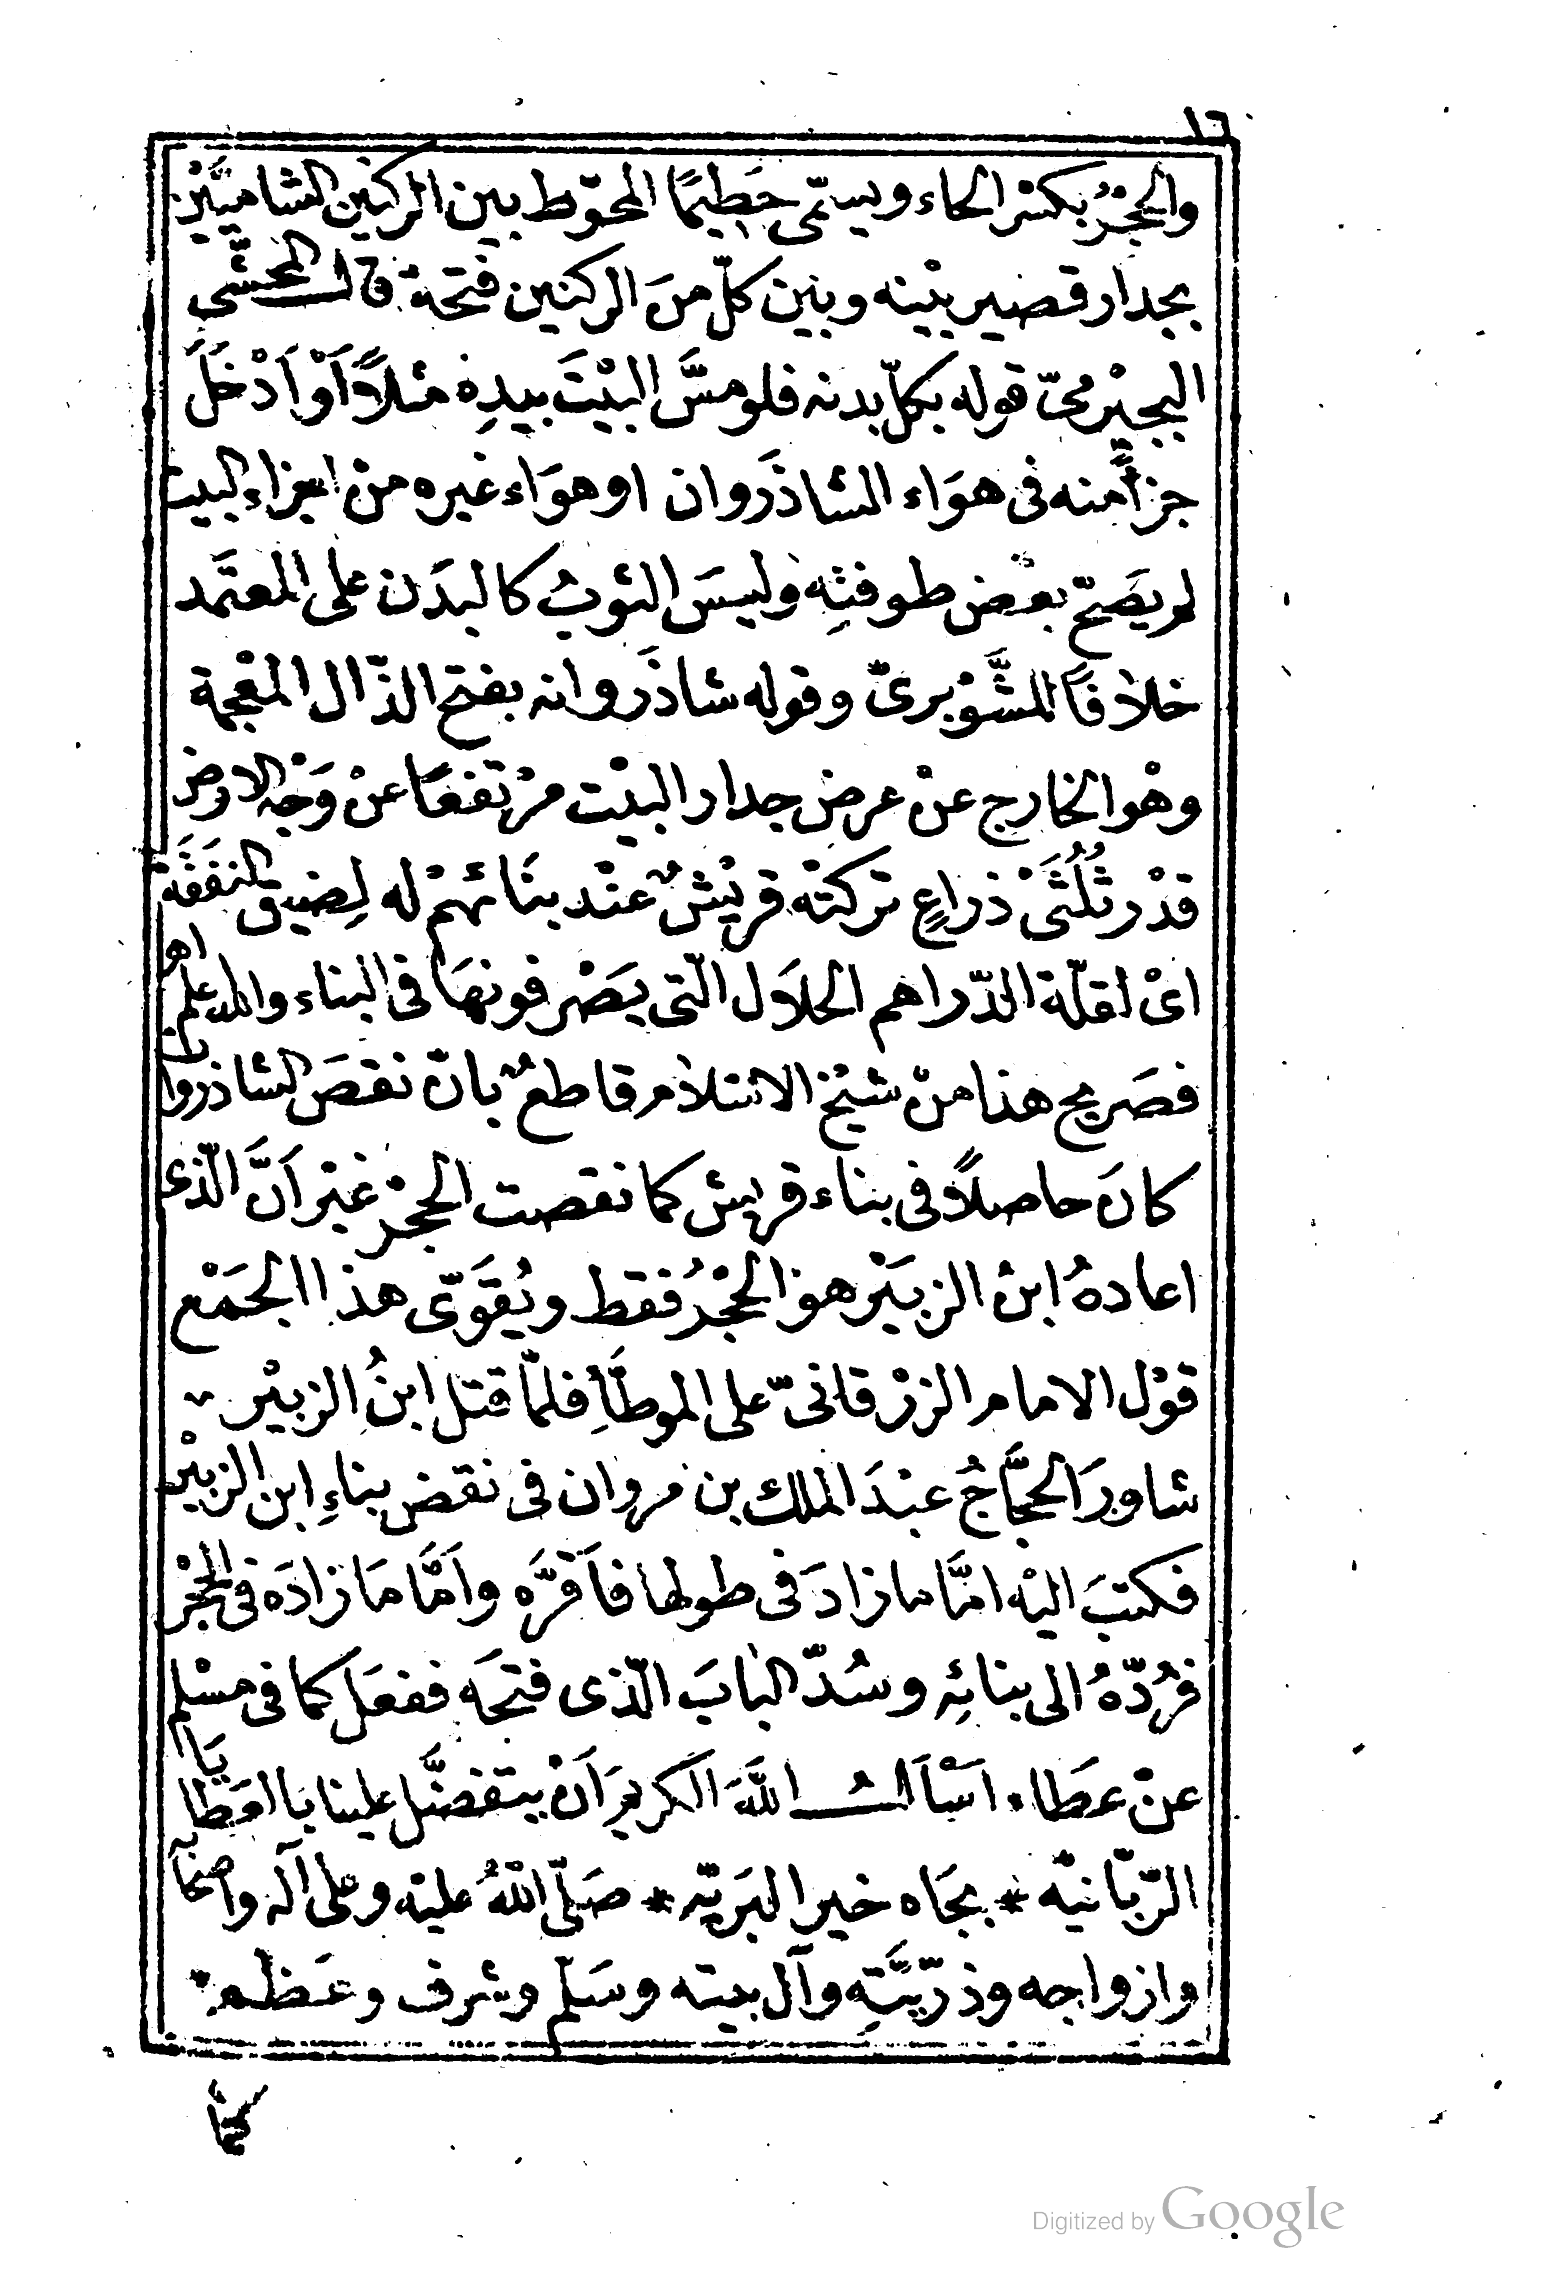 ١٦
والحِجْرُ بكسْر الحاء ويسمّى حَطيمًا المحوّط بين الركنين الشاميَّيْن
بجدار قصير بيْنه وبيْن كلّ منَ الركنين فتحة قال المحشّى
البجيْرمىّ قوله بكلّ بدنه فلو مسَّ البيْتَ بيدِه مثلاً اَوْ اَدْخَلَ
جزأً منه فى هوَاء الشاذَروان او هوَاء غيره منْ اجزاءِ البيت
لم يصَحّ بعْض طوفتِه وليسَ الثوبُ كالبدَن على المعتَمد
خلافًا للشَّوْبرىّ وقوله شاذَروانه بفتح الذّال المعْجمة
وهْو الخارج عنْ عرض جدار البيْت مرْتفعًا عنْ وَجْه الارض
قدْر ثُلُثَىْ ذراعٍ تركتْه قريْشٌ عنْد بنَائهمْ له لِضيق النفَقَة
اىْ لقلّة الدّراهم الحلاَل الّتى يَصْرفونهَا فى البناء والله اعلم اه
فصَريح هذا منْ شيْخ الاسْلام قاطعٌ بانّ نقصَ الشاذروان
كانَ حاصلاً فى بناء قريش كما نقصت الحِجْر غيْر اَنَّ الّذى
اعادهُ ابنُ الزبَيْر هوَ الحِجْرُ فقط ويُقَوّى هذا الجمَْع
قوْل الامام الزرْقانىّ على الموطَّأِ فلمّا قتل ابنُ الزبيْر
شاورَ الحجَّاجُ عبْدَ الملك بن مروان فى نقض بناءِ ابن الزبيْر
فكتبَ اليْه امَّا ما زادَ فى طولها فاَقرَّه واَمَّا مَا زادَه فى الحِجْر
فرُدّهُ الى بنائِه وسُدّ البابَ الّذى فتحَه ففعَل كما فى مسْلم
عنْ عطَاء اسْاَلُ اللهَ الكريمَ اَنْ يتفضَّل علينا بالعَطايَا
الرّبّانيّه * بجَاه خير البَريّه * صَلّى اللهُ عليْه وعلى آله واصحَابه
وازواجه وذرّيَّتِه وآل بيته وسَلّم وشرف وعَظم
كمَا
Digitized by Google